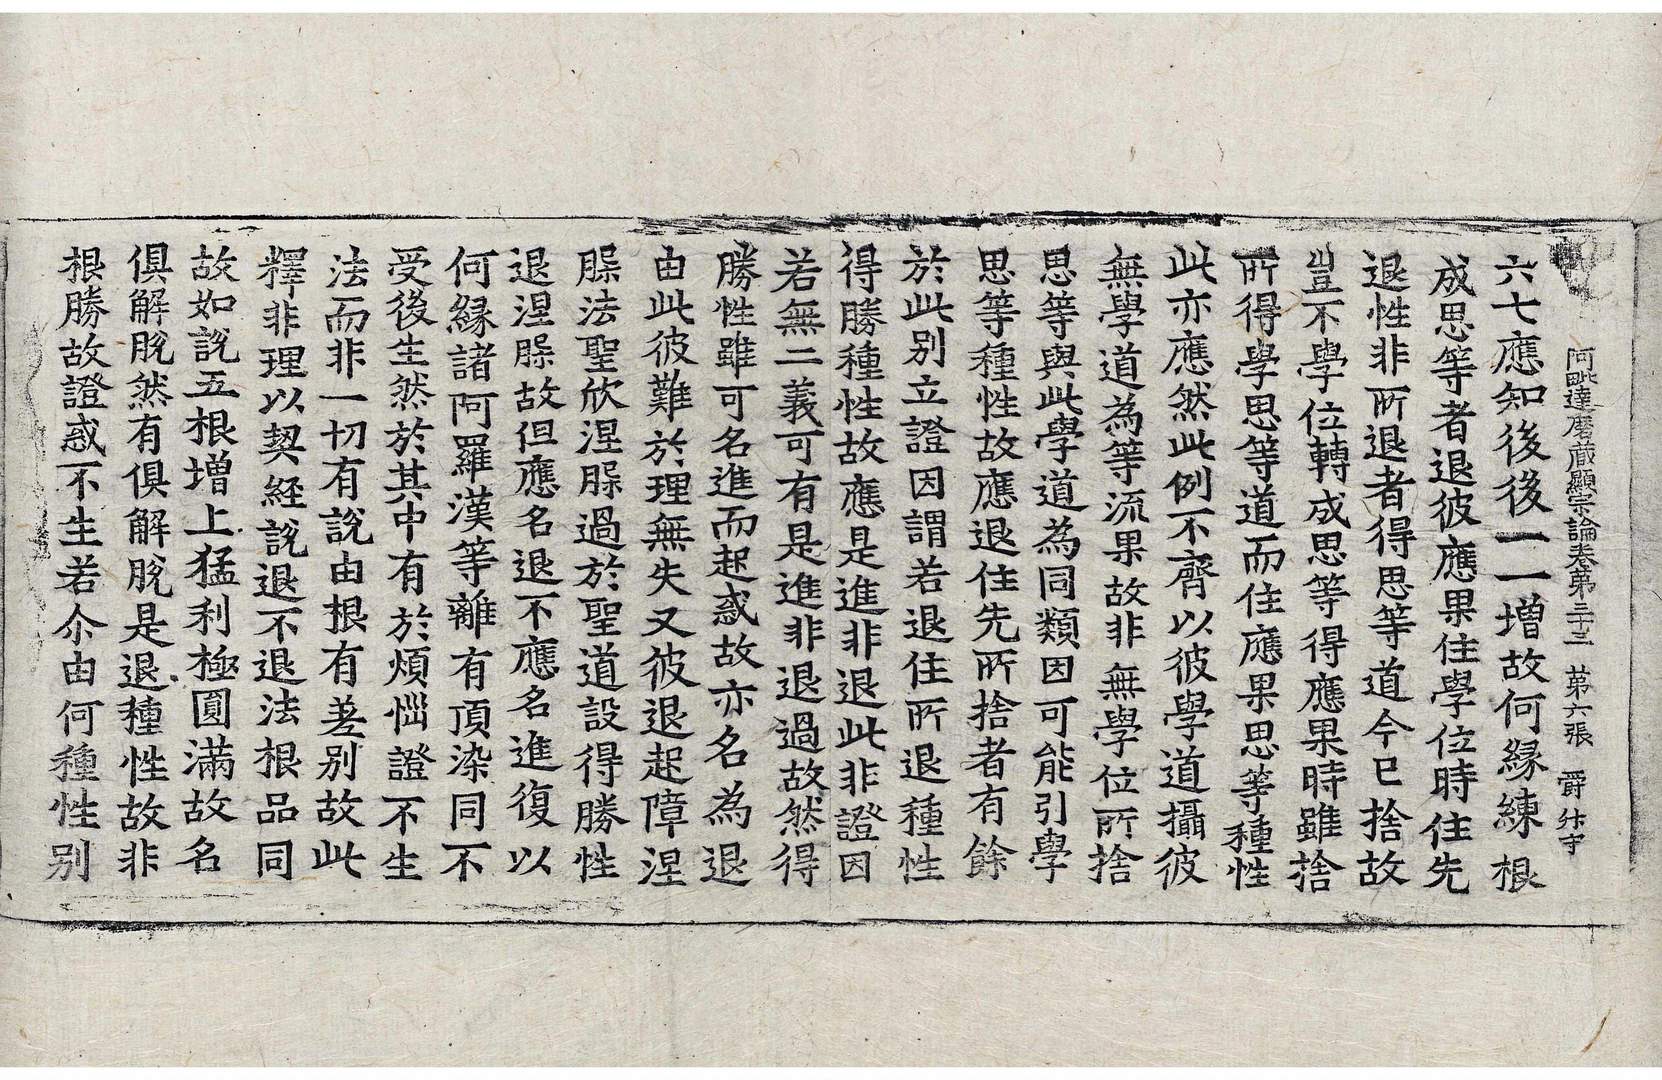 阿毗達磨藏顯宗論卷第三十三 第六張 爵 廾字
六七應知後後一一增故何緣練根
成思等者退彼應果住學位時住先
退性非所退者得思等道今已捨故
豈不學位轉成思等得應果時雖捨
所得學思等道而住應果思等種性
此亦應然此例不齊以彼學道攝彼
無學道為等流果故非無學位所捨
思等與此學道為同類因可能引學
思等種性故應退住先所捨者有餘
於此別立證因謂若退住所退種性
得勝種性故應是進非退此非證因
若無二義可有是進非退過故然得
勝性雖可名進而起惑故亦名為退
由此彼難於理無失又彼退起障涅
槃法聖欣涅槃過於聖道設得勝性
退涅槃故但應名退不應名進復以
何緣諸阿羅漢等離有頂染同不
受後生然於其中有於煩惱證不生
法而非一切有說由根有差別故此
釋非理以契經說退不退法根品同
故如說五根增上猛利極圓滿故名
俱解脫然有俱解脫是退種性故非
根勝故證惑不生若尒由何種性別